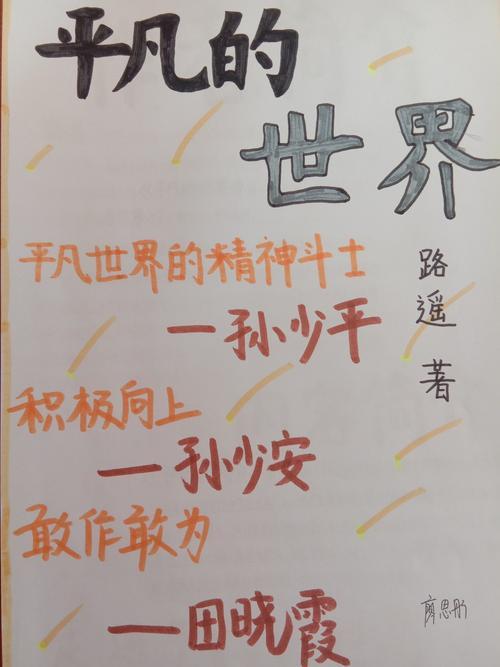 平凡的
世界
路遥 著
平凡世界的精神斗士
—孙少平
积极向上
—孙少安
敢作敢为
—田晓霞
廖思彤